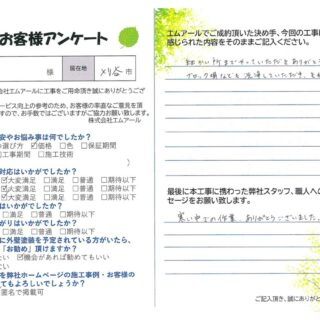 お客様アンケート
様
居住地
刈谷 市
株式会社エムアールに工事をご用命頂き誠にありがとうござ
ービス向上の参考のため、お客様の率直なご意見を頂
ますので、お手数ではございますがご協力お願いします。
株式会社エムアール
安やお悩み事は何でしたか？
の選び方 ☑価格 □色 □保証期間
□工事期間 □施工技術
対応はいかがでしたか？
☑大変満足 □満足 □普通 □期待以下
はいかがでしたか？
大変満足 □満足 □普通 □期待以下
がりはいかがでしたか？
大変満足 □満足 □普通 □期待以下
に外壁塗装を予定されている方がいたら、
「お勧め」頂けますか？
たい ☑機会があれば勧めてもいい
ない
を弊社ホームページの施工事例・お客様の
てもよろしいでしょうか？
匿名で掲載可
エムアールでご成約頂いた決め手、今回の工事に
感じられた内容をそのままご記入ください。
細かい所までやっていただきありがとう
ブロック塀なども洗浄していただき、
最後に本工事に携わった弊社スタッフ、職人への
セージをお願い致します。
寒い中での作業、ありがとうございました。
ご記入頂き、誠にありがと